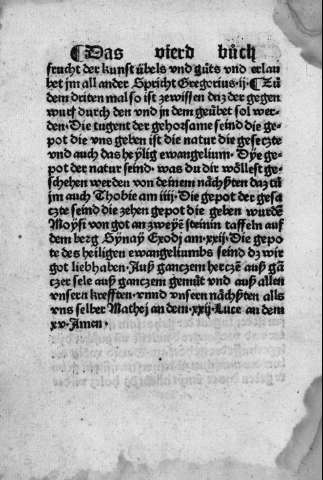 ¶Das vierd bůch
frucht der kunst übels vnd gůts vnd erlau
bet jm all ander Spricht Gregorius·ij·¶Zů
dem driten mal so ist zewissen daz der gegen
wurf durch den vnd in dem geübet sol wer
den· Die tugent der gehorsame seind die ge⸗
pot die vns geben ist die natur die gesetzte
vnd auch das heylig ewangelium· Dye ge⸗
pot der natur seind· was du dir wöllest ge⸗
schehen werden von deinem nächsten daz tů
jm auch Thobie am iiij· Die gepot der gesa
czte seind die zehen gepot die geben wurdē
Moysi von got an zweye steinin taffeln auf
dem berg Synay Exodj am·xxij· Die gepo
te des heiligen ewangeliumbs seind dz wir
got liebhaben· Auß ganczem herczē auß gā
czer sele auß ganczem gemüt vnd auß allen
vnsern krefften·vnnd vnsern nächsten alls
vns selber Mathej an dem·xxij·Luce an dem
xv·Amen·